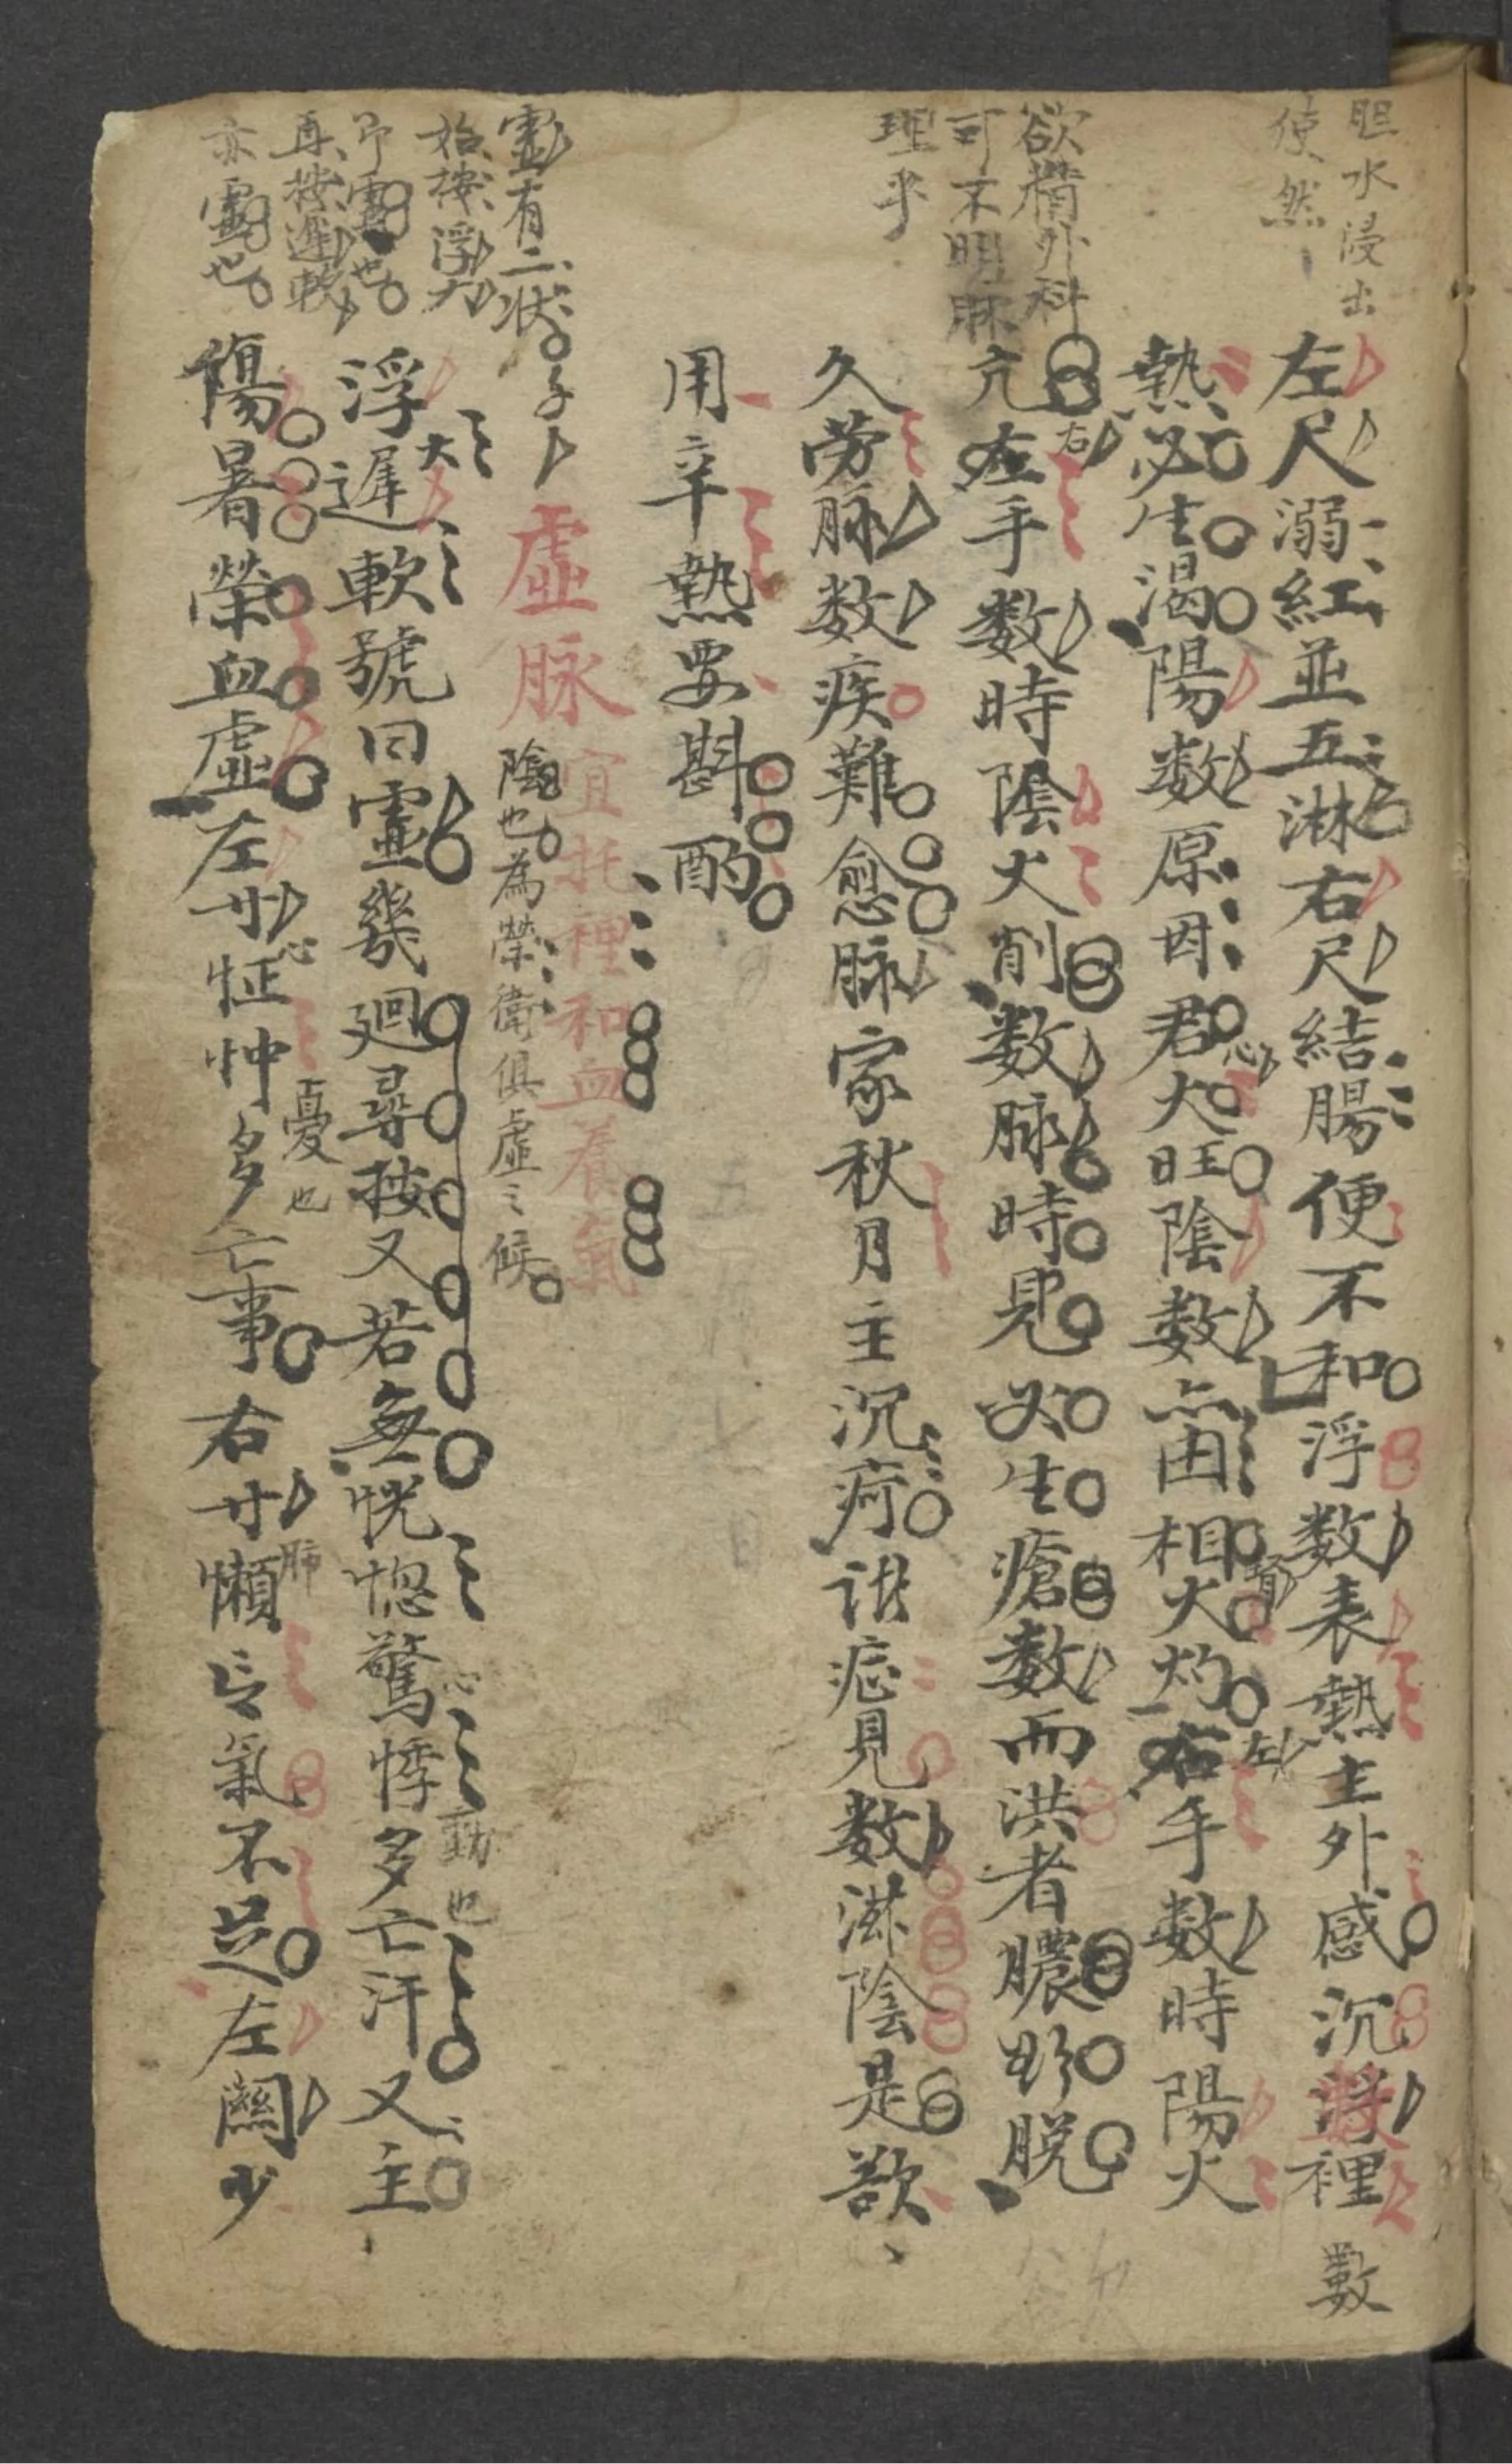 胆水浸出
使然
左尺溺紅並五淋右尺結腸便不和浮数表熱主外感沉数裡
數
熱必生渴陽数原因君火旺陰数亦由相火灼右手数時陽火
心
腎
左
欲精外科
可不明脉
理乎
亢左手数時陰火削数脉時見必生瘡数而洪者膿野脱
右
久劳脉数疾難愈脉家秋月主沉疴諸症見数滋陰是欲
用辛熱要斟酌
虛有二状
虛脉
宜托裡和血養氣
陰也為榮衛俱虛之候
始按浮大
即虛也
再按遲軟
亦虛也
浮遲軟號曰虛幾廻尋按又若無恍惚驚悸多亡汗又主
大
心
動也
傷暑榮血虛左寸怔忡多亡事右寸懶言氣不足左關少
心
憂也
肺